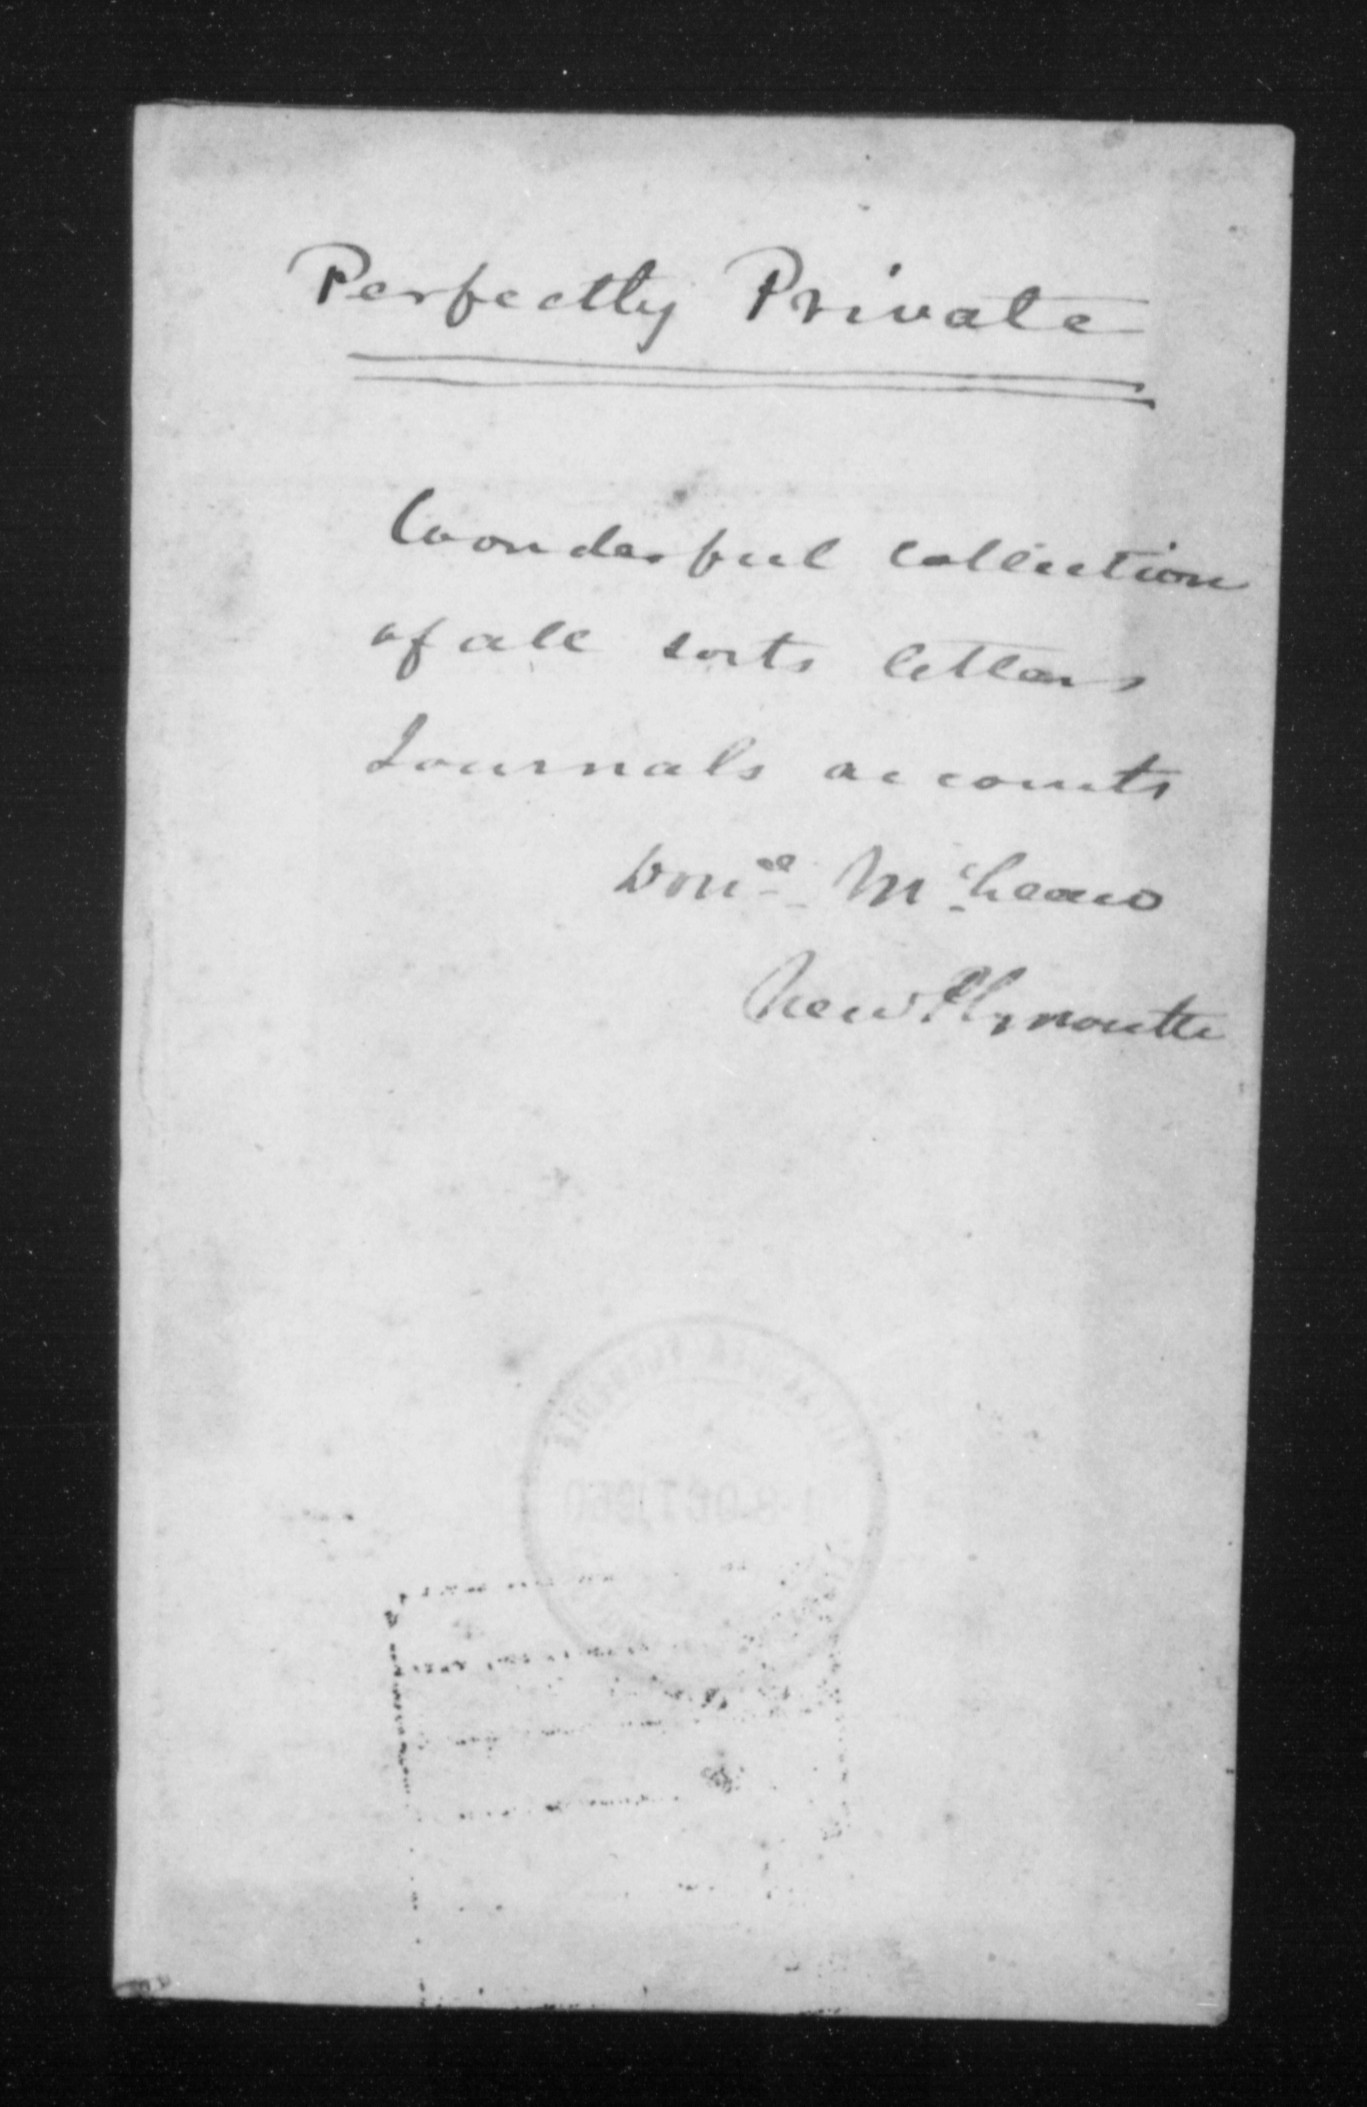 Perfectly Private
Wonderful collection
of all sorts letters
Journals accounts
McLean
New Plymouth
18 OCT 1960